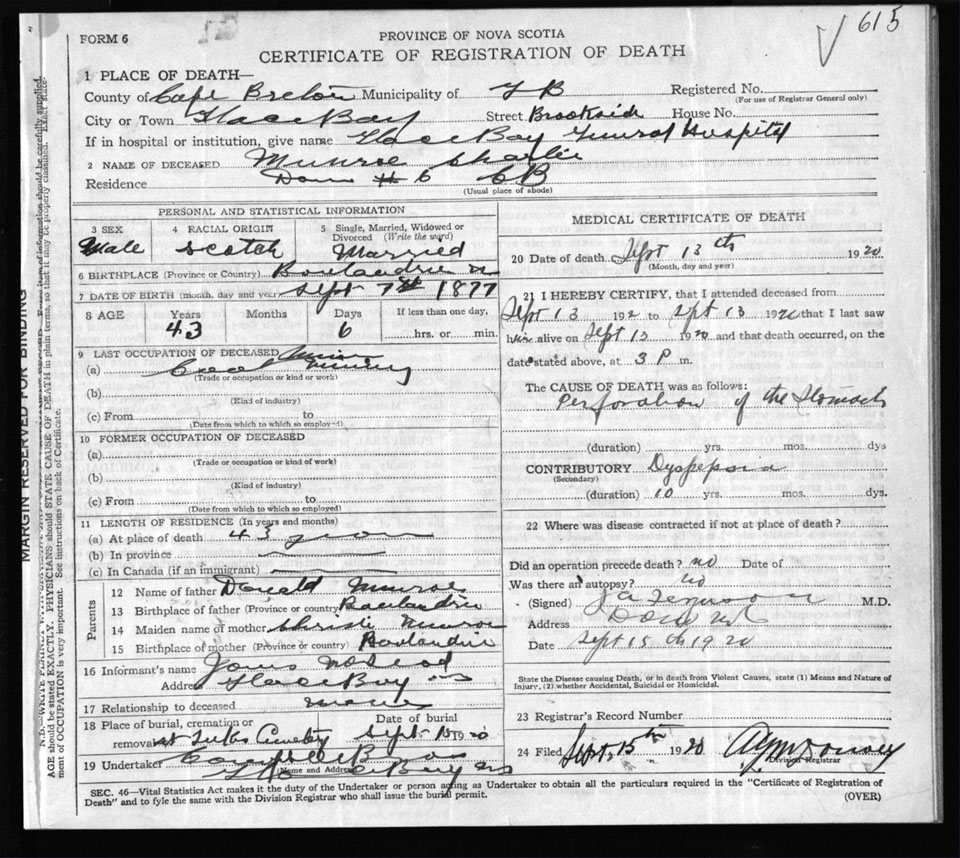 615
FORM 6
PROVINCE OF NOVA SCOTIA
CERTIFICATE OF REGISTRATION OF DEATH
1 PLACE OF DEATH—
County of Cape Breton Municipality of Registered No.
(For use of Registrar General only)
City or Town Glace Bay Street Brookside House No.
If in hospital or institution, give name Glace Bay General Hospital
2 NAME OF DECEASED Munroe Charlie
Residence Dom # 6 CB
(Usual place of abode)
PERSONAL AND STATISTICAL INFORMATION
3 SEX 4 RACIAL ORIGIN 5 Single, Married, Widowed or Divorced (Write the word)
Male Scotch Married
6 BIRTHPLACE (Province or Country)
7 DATE OF BIRTH (month, day and year) Sept 7th 1877
8 AGE Years Months Days If less than one day,
43 6 hrs. or min.
9 LAST OCCUPATION OF DECEASED
(a) Coal Mining
(Trade or occupation or kind of work)
(b)
(Kind of industry)
(c) From to
(Date from which to which so employed)
10 FORMER OCCUPATION OF DECEASED
(a)
(Trade or occupation or kind of work)
(b)
(Kind of industry)
(c) From to
(Date from which to which so employed)
11 LENGTH OF RESIDENCE (In years and months)
(a) At place of death 43 years
(b) In province
(c) In Canada (if an immigrant)
Parents
12 Name of father Donald Munroe
13 Birthplace of father (Province or country)
14 Maiden name of mother Christie Munroe
15 Birthplace of mother (Province or country)
16 Informant's name James McLeod
Address Glace Bay NS
17 Relationship to deceased
18 Place of burial, cremation or removal Date of burial
St Lukes Cemetery Sept 15 1920
19 Undertaker
(Name and Address)
Glace Bay NS
MEDICAL CERTIFICATE OF DEATH
20 Date of death Sept 13th 1920
(Month, day and year)
21 I HEREBY CERTIFY, that I attended deceased from
Sept 13 192 to Sept 13 1920 that I last saw
him alive on Sept 13 1920 and that death occurred, on
date stated above, at 3 P m.
The CAUSE OF DEATH was as follows:
Perforation of the Stomach
(duration) yrs. mos. dys
CONTRIBUTORY Dyspepsia
(Secondary)
(duration) 10 yrs. mos. dys.
22 Where was disease contracted if not at place of death?
Did an operation precede death? no Date of
Was there an autopsy? no
(Signed) Ferguson M.D.
Address
Date Sept 15th 1920
State the Disease causing Death, or in death from Violent Causes, state (1) Means and Nature of
Injury, (2) whether Accidental, Suicidal or Homicidal.
23 Registrar's Record Number
24 Filed Sept 15th 1920
Division Registrar
SEC. 46—Vital Statistics Act makes it the duty of the Undertaker or person acting as Undertaker to obtain all the particulars required in the "Certificate of Registration of
Death" and to fyle the same with the Division Registrar who shall issue the burial permit.
(OVER)
MARGIN RESERVED FOR BINDING
AGE should be stated EXACTLY. PHYSICIANS should STATE CAUSE OF DEATH in plain terms, so that it may be properly classified. Exact state-
ment of OCCUPATION is very important. See instructions on back of Certificate.